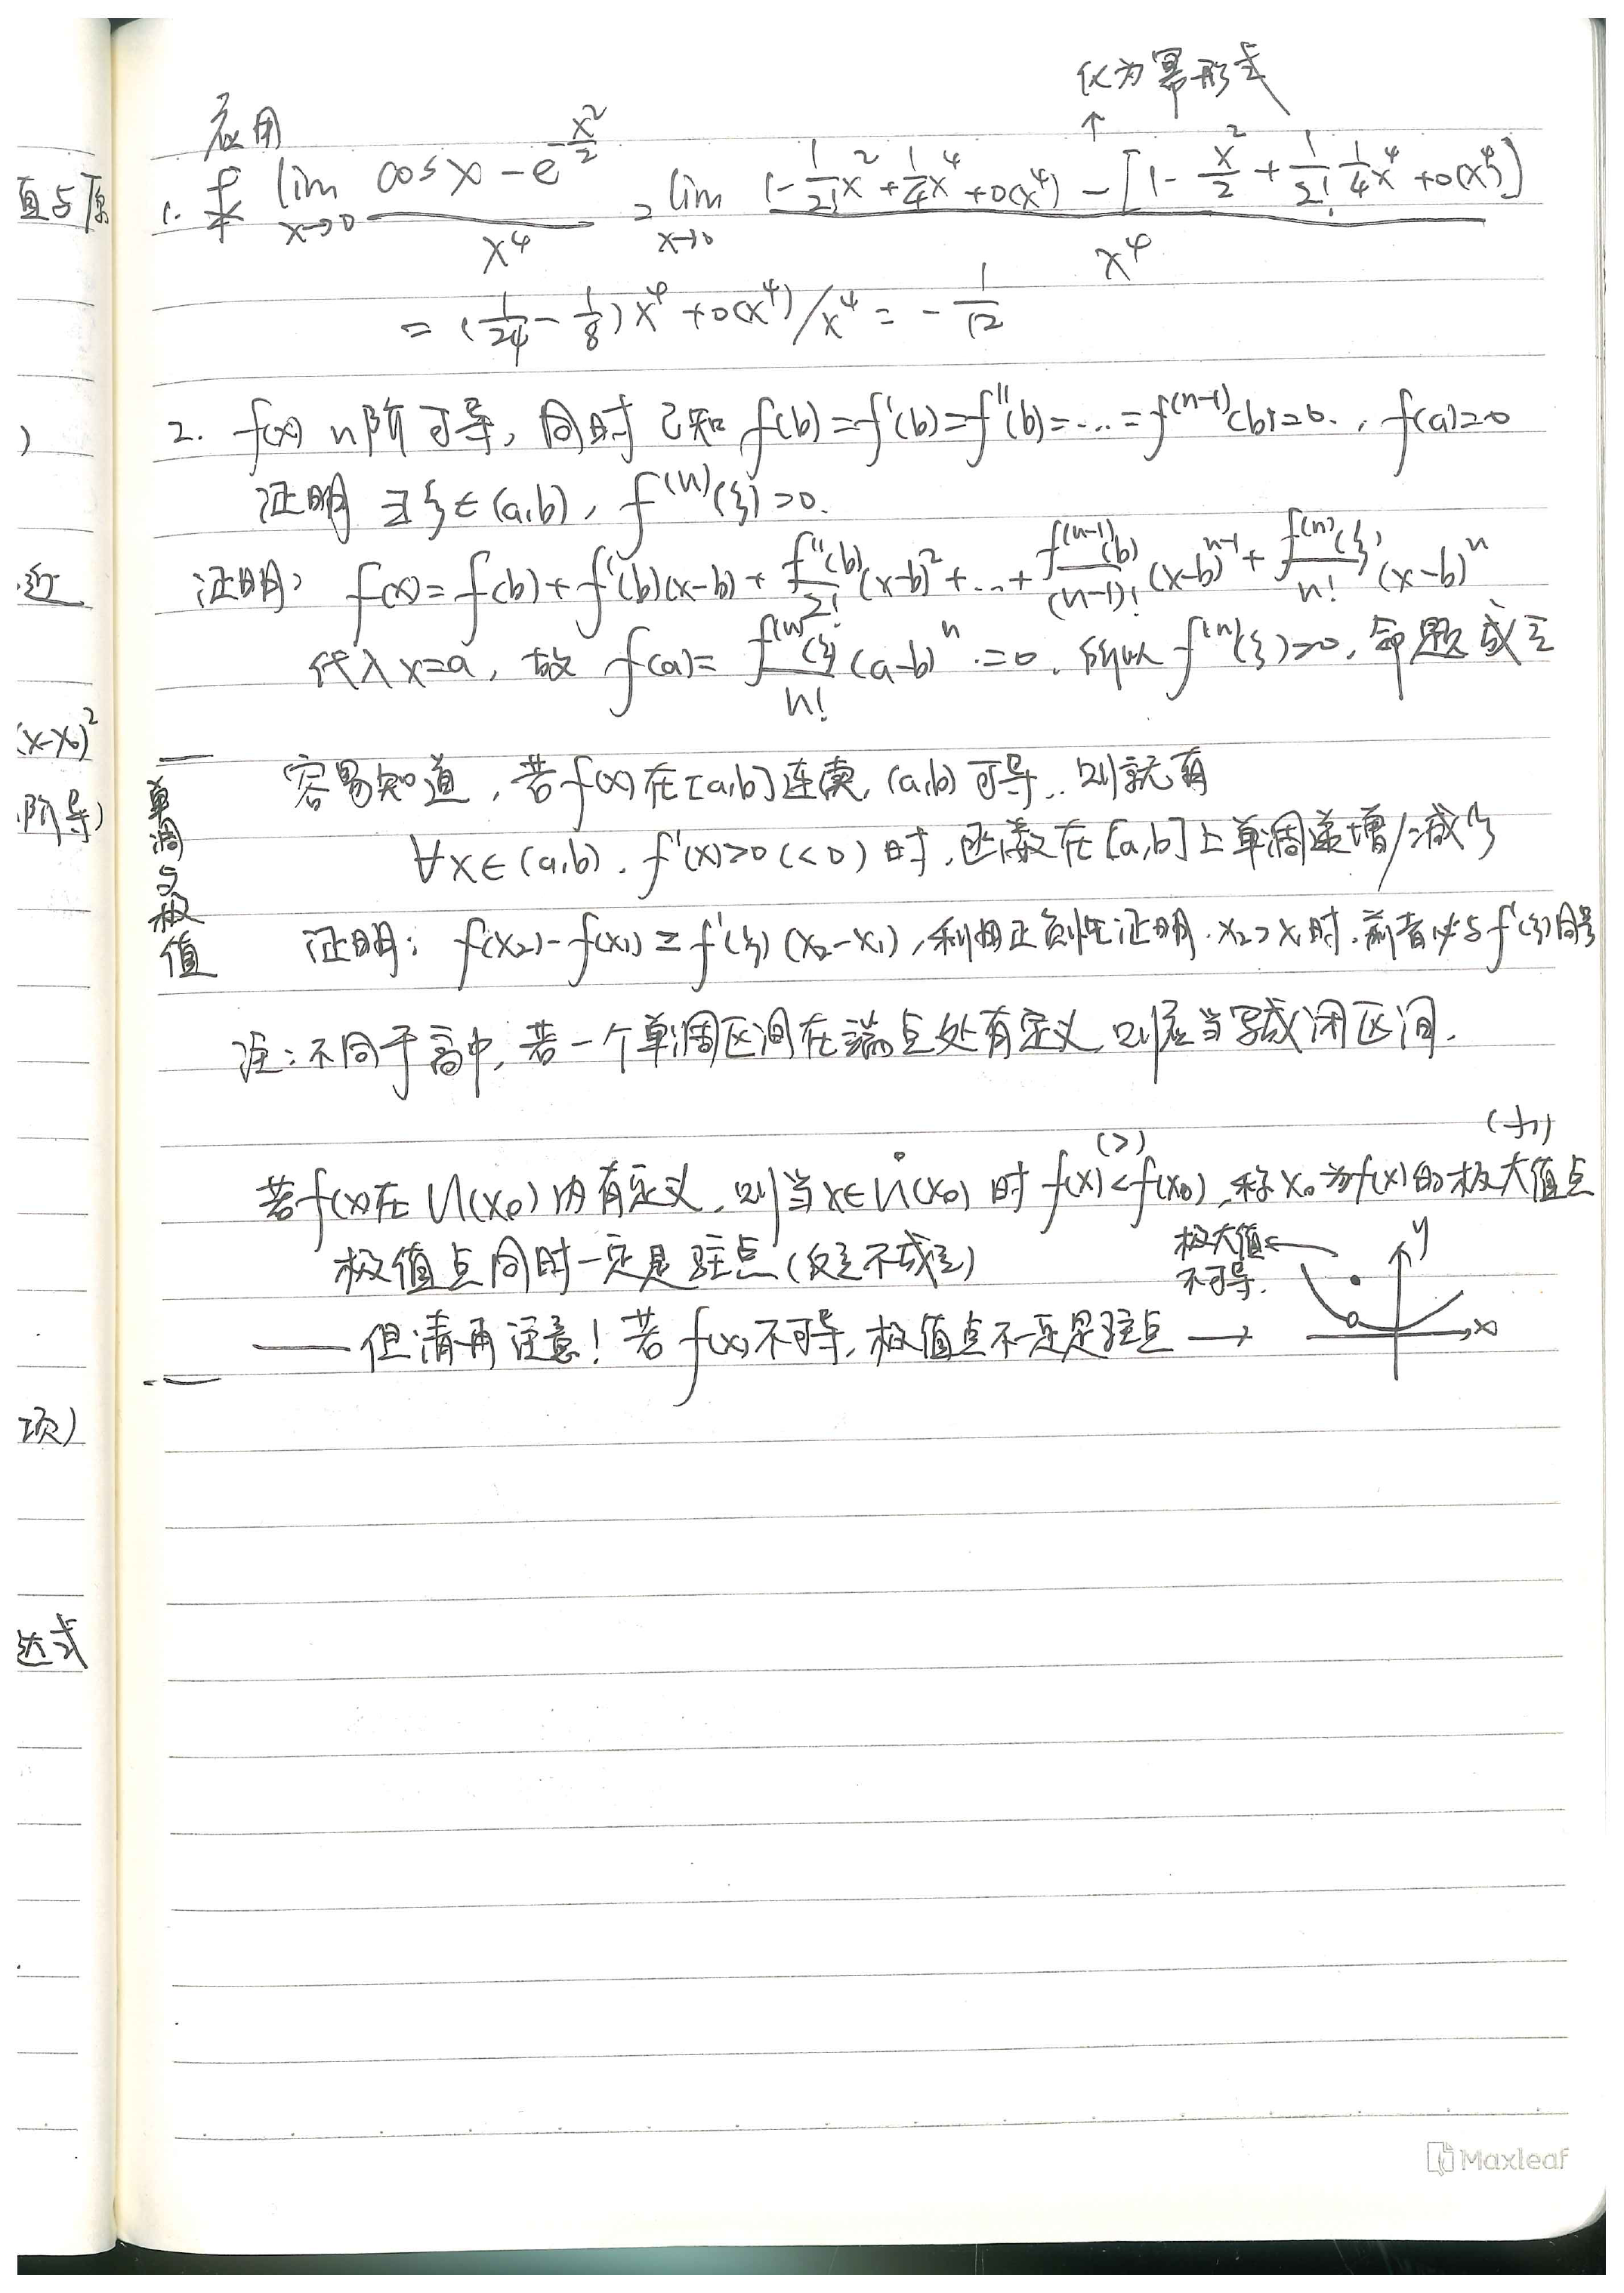 化为幂形式
↑
应用
1. 求 lim_{x→0} (cosx - e^{-x²/2}) / x⁴ = lim_{x→0} (1 - 1/2! x² + 1/4 x⁴ + o(x⁴) - [1 - x²/2 + 1/2! 1/4 x⁴ + o(x⁴)]) / x⁴
= (1/24 - 1/8) x⁴ + o(x⁴) / x⁴ = - 1/12
2. f(x) n阶可导, 同时已知 f(b) = f'(b) = f''(b) = … = f^{(n-1)}(b) = 0. , f(a) = 0
证明 ∃ξ∈(a,b), f^{(n)}(ξ) = 0.
证明: f(x) = f(b) + f'(b)(x-b) + f''(b)/2! (x-b)² + … + f^{(n-1)}(b)/(n-1)! (x-b)^{n-1} + f^{(n)}(ξ)/n! (x-b)^n
代入 x=a, 故 f(a) = f^{(n)}(ξ)/n! (a-b)^n = 0. 所以 f^{(n)}(ξ) = 0, 命题成立
单调与极值
容易知道, 若 f(x) 在 [a,b] 连续, (a,b) 可导, 则就有
∀x∈(a,b), f'(x)>0 (<0) 时, 函数在 [a,b] 上单调递增/减
证明: f(x₂) - f(x₁) = f'(ξ) (x₂-x₁), 利用正负性证明. x₂>x₁ 时. 前者必与 f'(ξ) 同号
注: 不同于高中, 若一个单调区间在端点处有定义, 则应当写成闭区间.
(>) (小)
若 f(x) 在 U(x₀) 内有定义, 则当 x∈Ů(x₀) 时 f(x) < f(x₀), 称 x₀ 为 f(x) 的极大值点
极值点同时一定是驻点 (反之不成立)
极大值 ←
不可导.
y
—— 但请再注意! 若 f(x) 不可导, 极值点不一定是驻点 →
x
直与原
)
近
(x-x₀)²
阶导)
项)
达式
Maxleaf